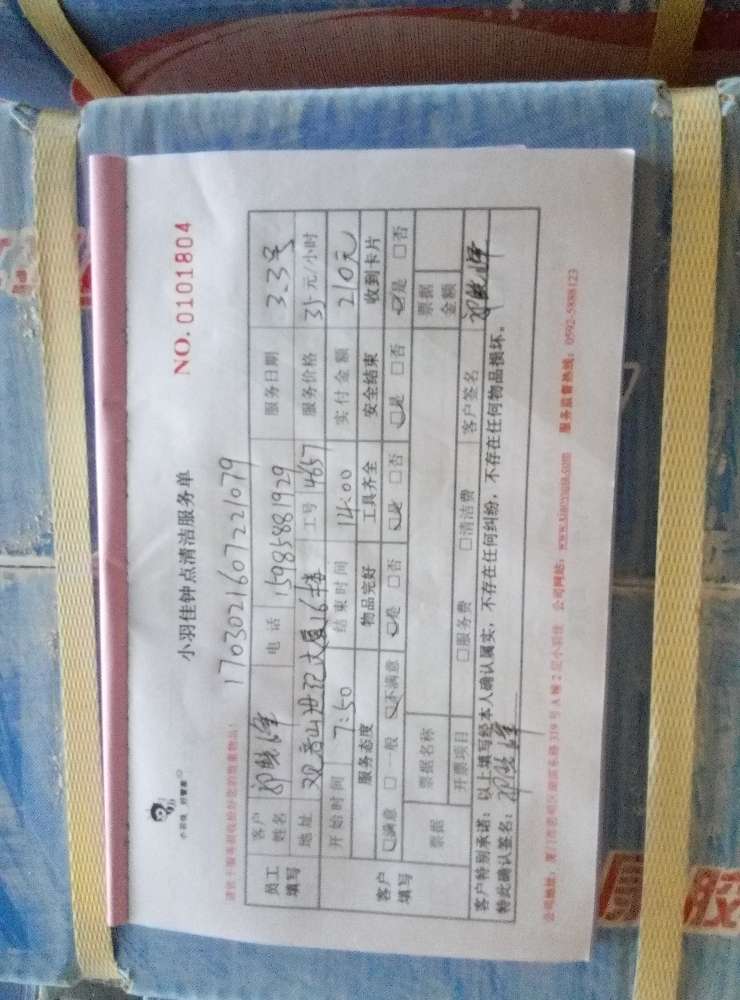 小羽佳 好管家
小羽佳钟点清洁服务单
NO. 0101804
1703021607221079
员工填写 客户姓名 电话 15985881929 服务日期 3.3号
地址 观音山世纪大厦16楼 工号 4657 服务价格 35元/小时
开始时间 7:50 结束时间 14:00 实付金额 210元
客户填写 服务态度 物品完好 工具齐全 安全结束 收到卡片
□满意 □一般 □不满意 □是 □否 □是 □否 □是 □否 □是 □否
票据 票据名称 票据金额
开票项目 □服务费 □清洁费 客户签名
客户特别承诺：以上填写经本人确认属实，不存在任何纠纷，不存在任何物品损坏。
特此确认签名：
公司地址：厦门市思明区湖滨东路319号A幢2层小羽佳 公司网站：www.xiaoyujia.com 服务监督热线：0592-5888123
股